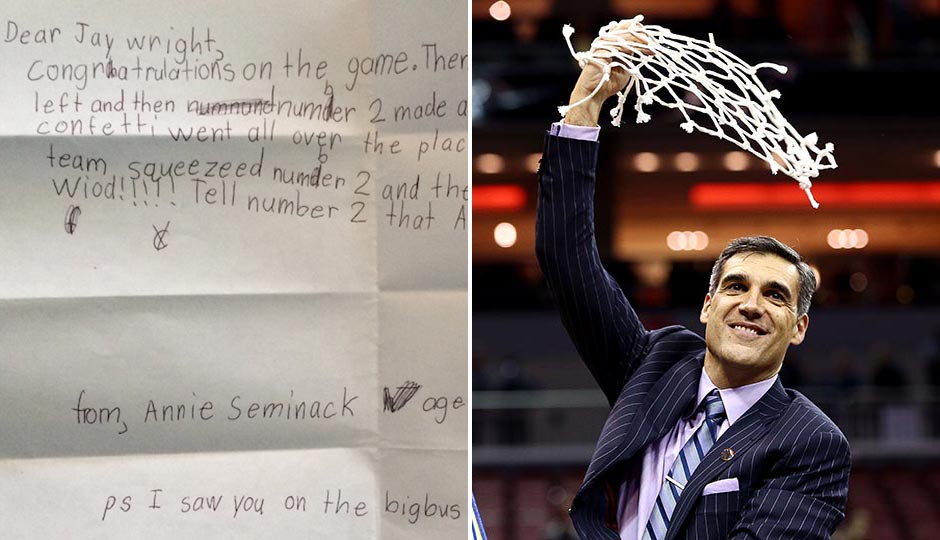 Dear Jay wright,
Congrhatrulations on the game. Ther
left and then number 2 made a
confetti went all over the plac
team squeezeed number 2 and the
Wiod!!!!! Tell number 2 that A
from, Annie Seminack age
ps I saw you on the bigbus